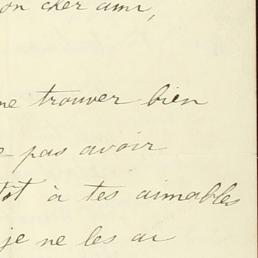 on cher ami,
me trouver bien
pas avoir
tôt à tes aimables
je ne les ai